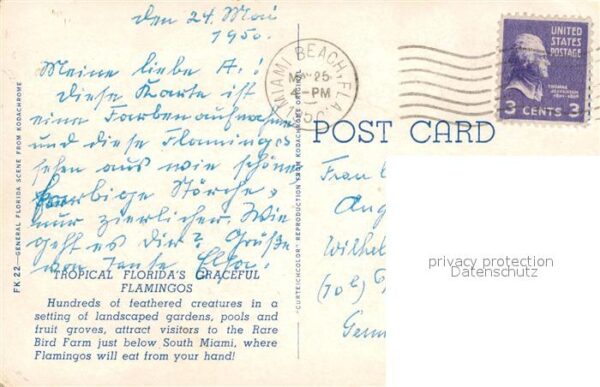 den 24. Mai
1950.
Meine liebe A.!
diese Karte ist
eine Farbenaufnahme
und diese Flamingos
sehen aus wie schöne
farbige Störche,
nur zierlicher. Wie
geht es dir? Grüße
von Tante Elsa.
TROPICAL FLORIDA'S GRACEFUL
FLAMINGOS
Hundreds of feathered creatures in a
setting of landscaped gardens, pools and
fruit groves, attract visitors to the Rare
Bird Farm just below South Miami, where
Flamingos will eat from your hand!
FK 22—GENERAL FLORIDA SCENE FROM KODACHROME
"CURTEICHCOLOR" REPRODUCTION FROM KODACHROME ORIGINAL
MIAMI BEACH, FLA.
MAY 25
4-PM
1950
UNITED
STATES
POSTAGE
THOMAS
JEFFERSON
1801-1809
3 CENTS 3
POST CARD
Frau
Aug
Wilhel
Germ
privacy protection
Datenschutz